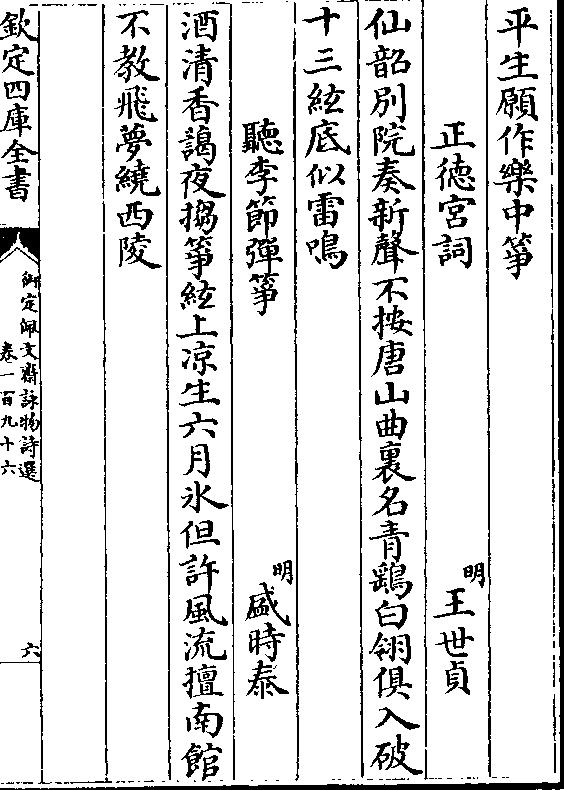 平生願作樂中箏
正徳宮詞
明
王世貞
仙韶別院奏新聲不按唐山曲裏名青鵶白翎俱入破
十三絃底似雷鳴
聽李節彈箏
明
盛時泰
酒清香藹夜搊箏絃上凉生六月氷但許風流擅南館
不教飛夢繞西陵
欽定四庫全書
御定佩文齋詠物詩選
卷一百九十六
六